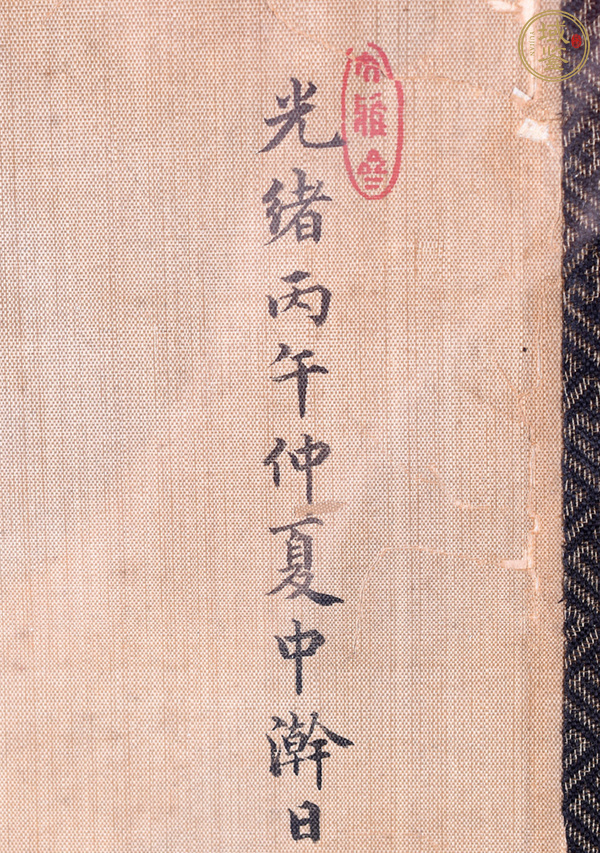 光緒丙午仲夏中澣日